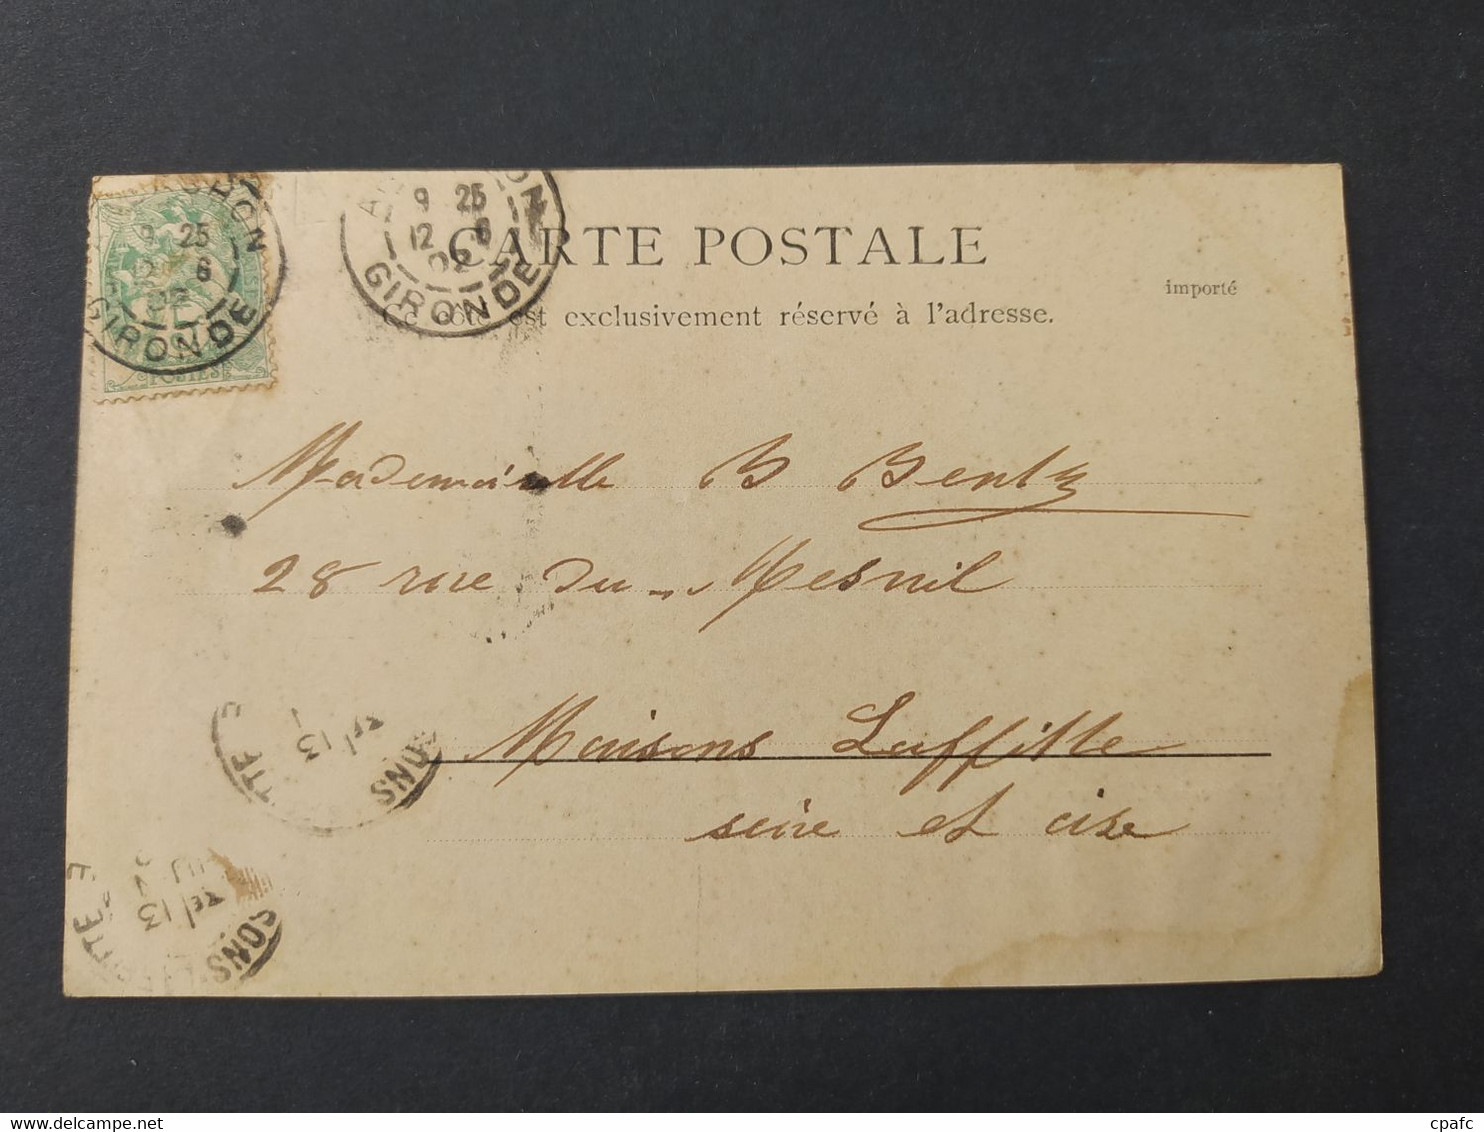 CHON
9 25
12 6
02
GIRONDE
POSTES
ON
9 25
12 6
02
GIRONDE
CARTE POSTALE
importé
Ce côté est exclusivement réservé à l'adresse.
Mademoiselle B Bentz
28 rue du Mesnil
Maisons Laffitte
seine et oise
13
SONS
13
SONS
cpafc